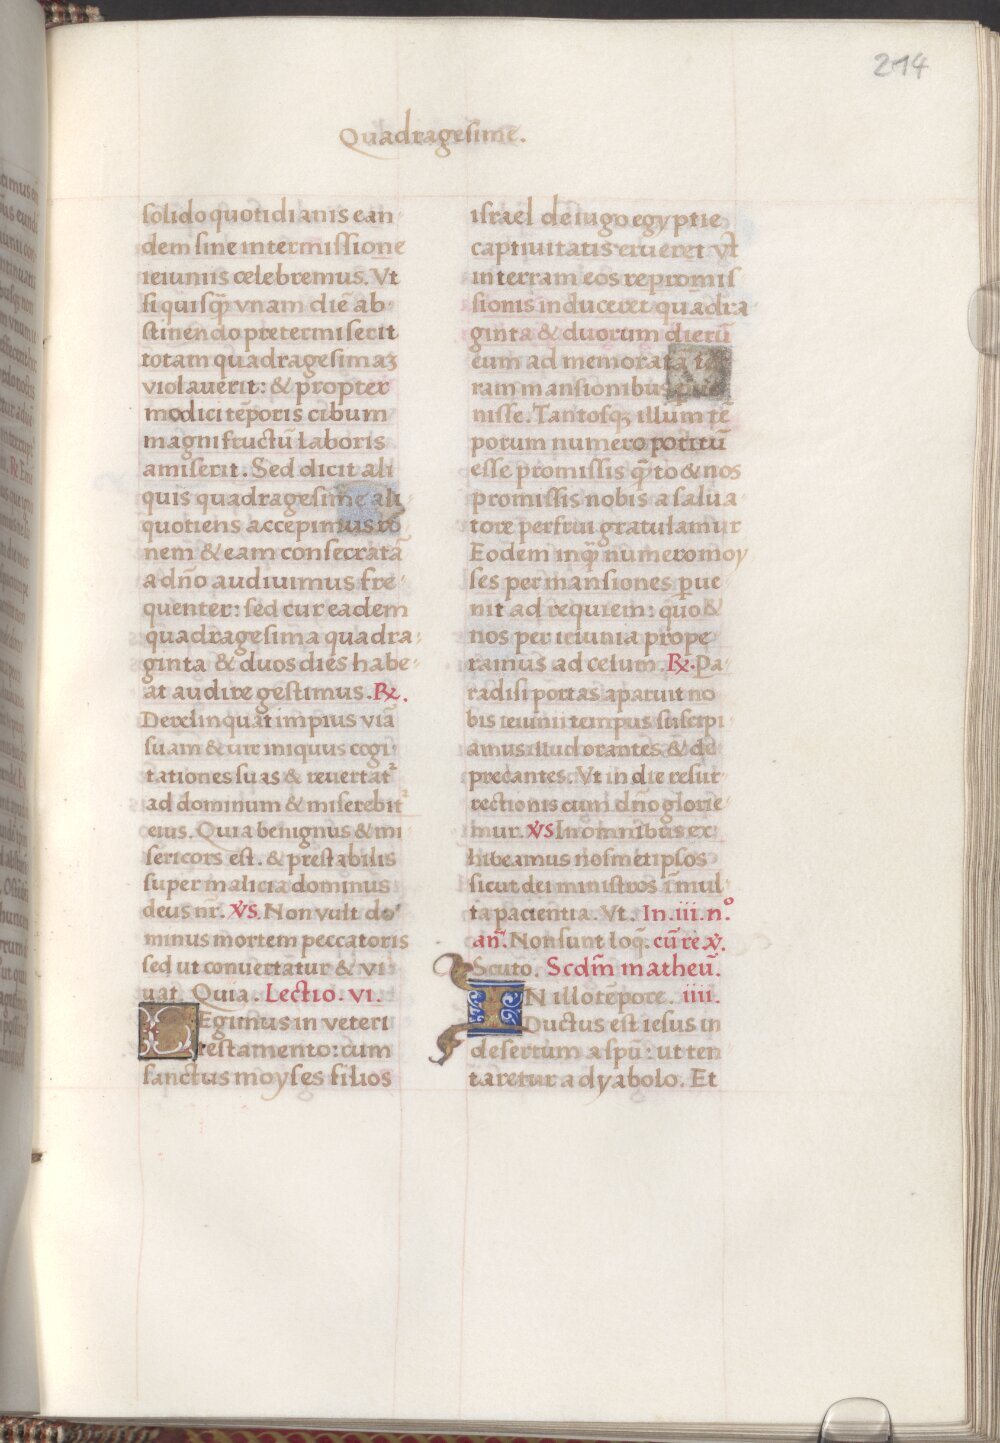 214
Quadragesimē.
solido quotidianis ean
dem sine intermissione
ieiuniis celebremus. Vt
si quisq̃ vnam diē ab
stinendo pretermiserit
totam quadragesimaʒ
violauerit: & propter
modici tēporis cibum
magni fructū laboris
amiserit. Sed dicit ali
quis quadragesime ali
quotiens accepimus rō
nem & eam consecratā
a dño audiuimus fre
quenter: sed cur eadem
quadragesima quadra
ginta & duos dies habe
at audire gestimus. R℣.
Derelinquat impius viā
suam & uir iniquus cogi
tationes suas & reuertat᷑
ad dominum & miserebit᷑
eius. Quia benignus & mi
sericors est. & prestabilis
super malicia dominus
deus nr̄. v̓s. Non vult do
minus mortem peccatoris
sed ut conuertatur & vi
uat. Quia. Lectio. vi.
LEgimus in veteri
testamento: cum
sanctus moyses filios
israel de iugo egyptie
captiuitatis erueret vt
in terram eos repromis
sionis induceret quadra
ginta & duorum dierū
eum ad memorata
ram mansionibus
nisse. Tantosqʒ illum tē
porum numero potitū
esse promissis q̄to & nos
promissis nobis a salua
tore perfrui gratulamur
Eodem inq̄ numero moy
ses per mansiones ꝑue
nit ad requiem: quo &
nos per ieiunia prope
ramus ad celum. R℣. Pa
radisi portas aparuit no
bis ieiunii tempus suscipi
amus illud orantes & de
precantes. Vt in die resur
rectionis cum dño glorie
mur. v̓s In omnibus ex
hibeamus nosmetipsos
sicut dei ministros ī mul
ta pacientia. Vt. In. iii. nº.
an̄. Non sunt loq̄. cū re v̓.
Scuto. Scdm̄ matheū.
IN illo tēpore. iiii.
Ductus est iesus in
desertum a spū: ut ten
taretur a dyabolo. Et